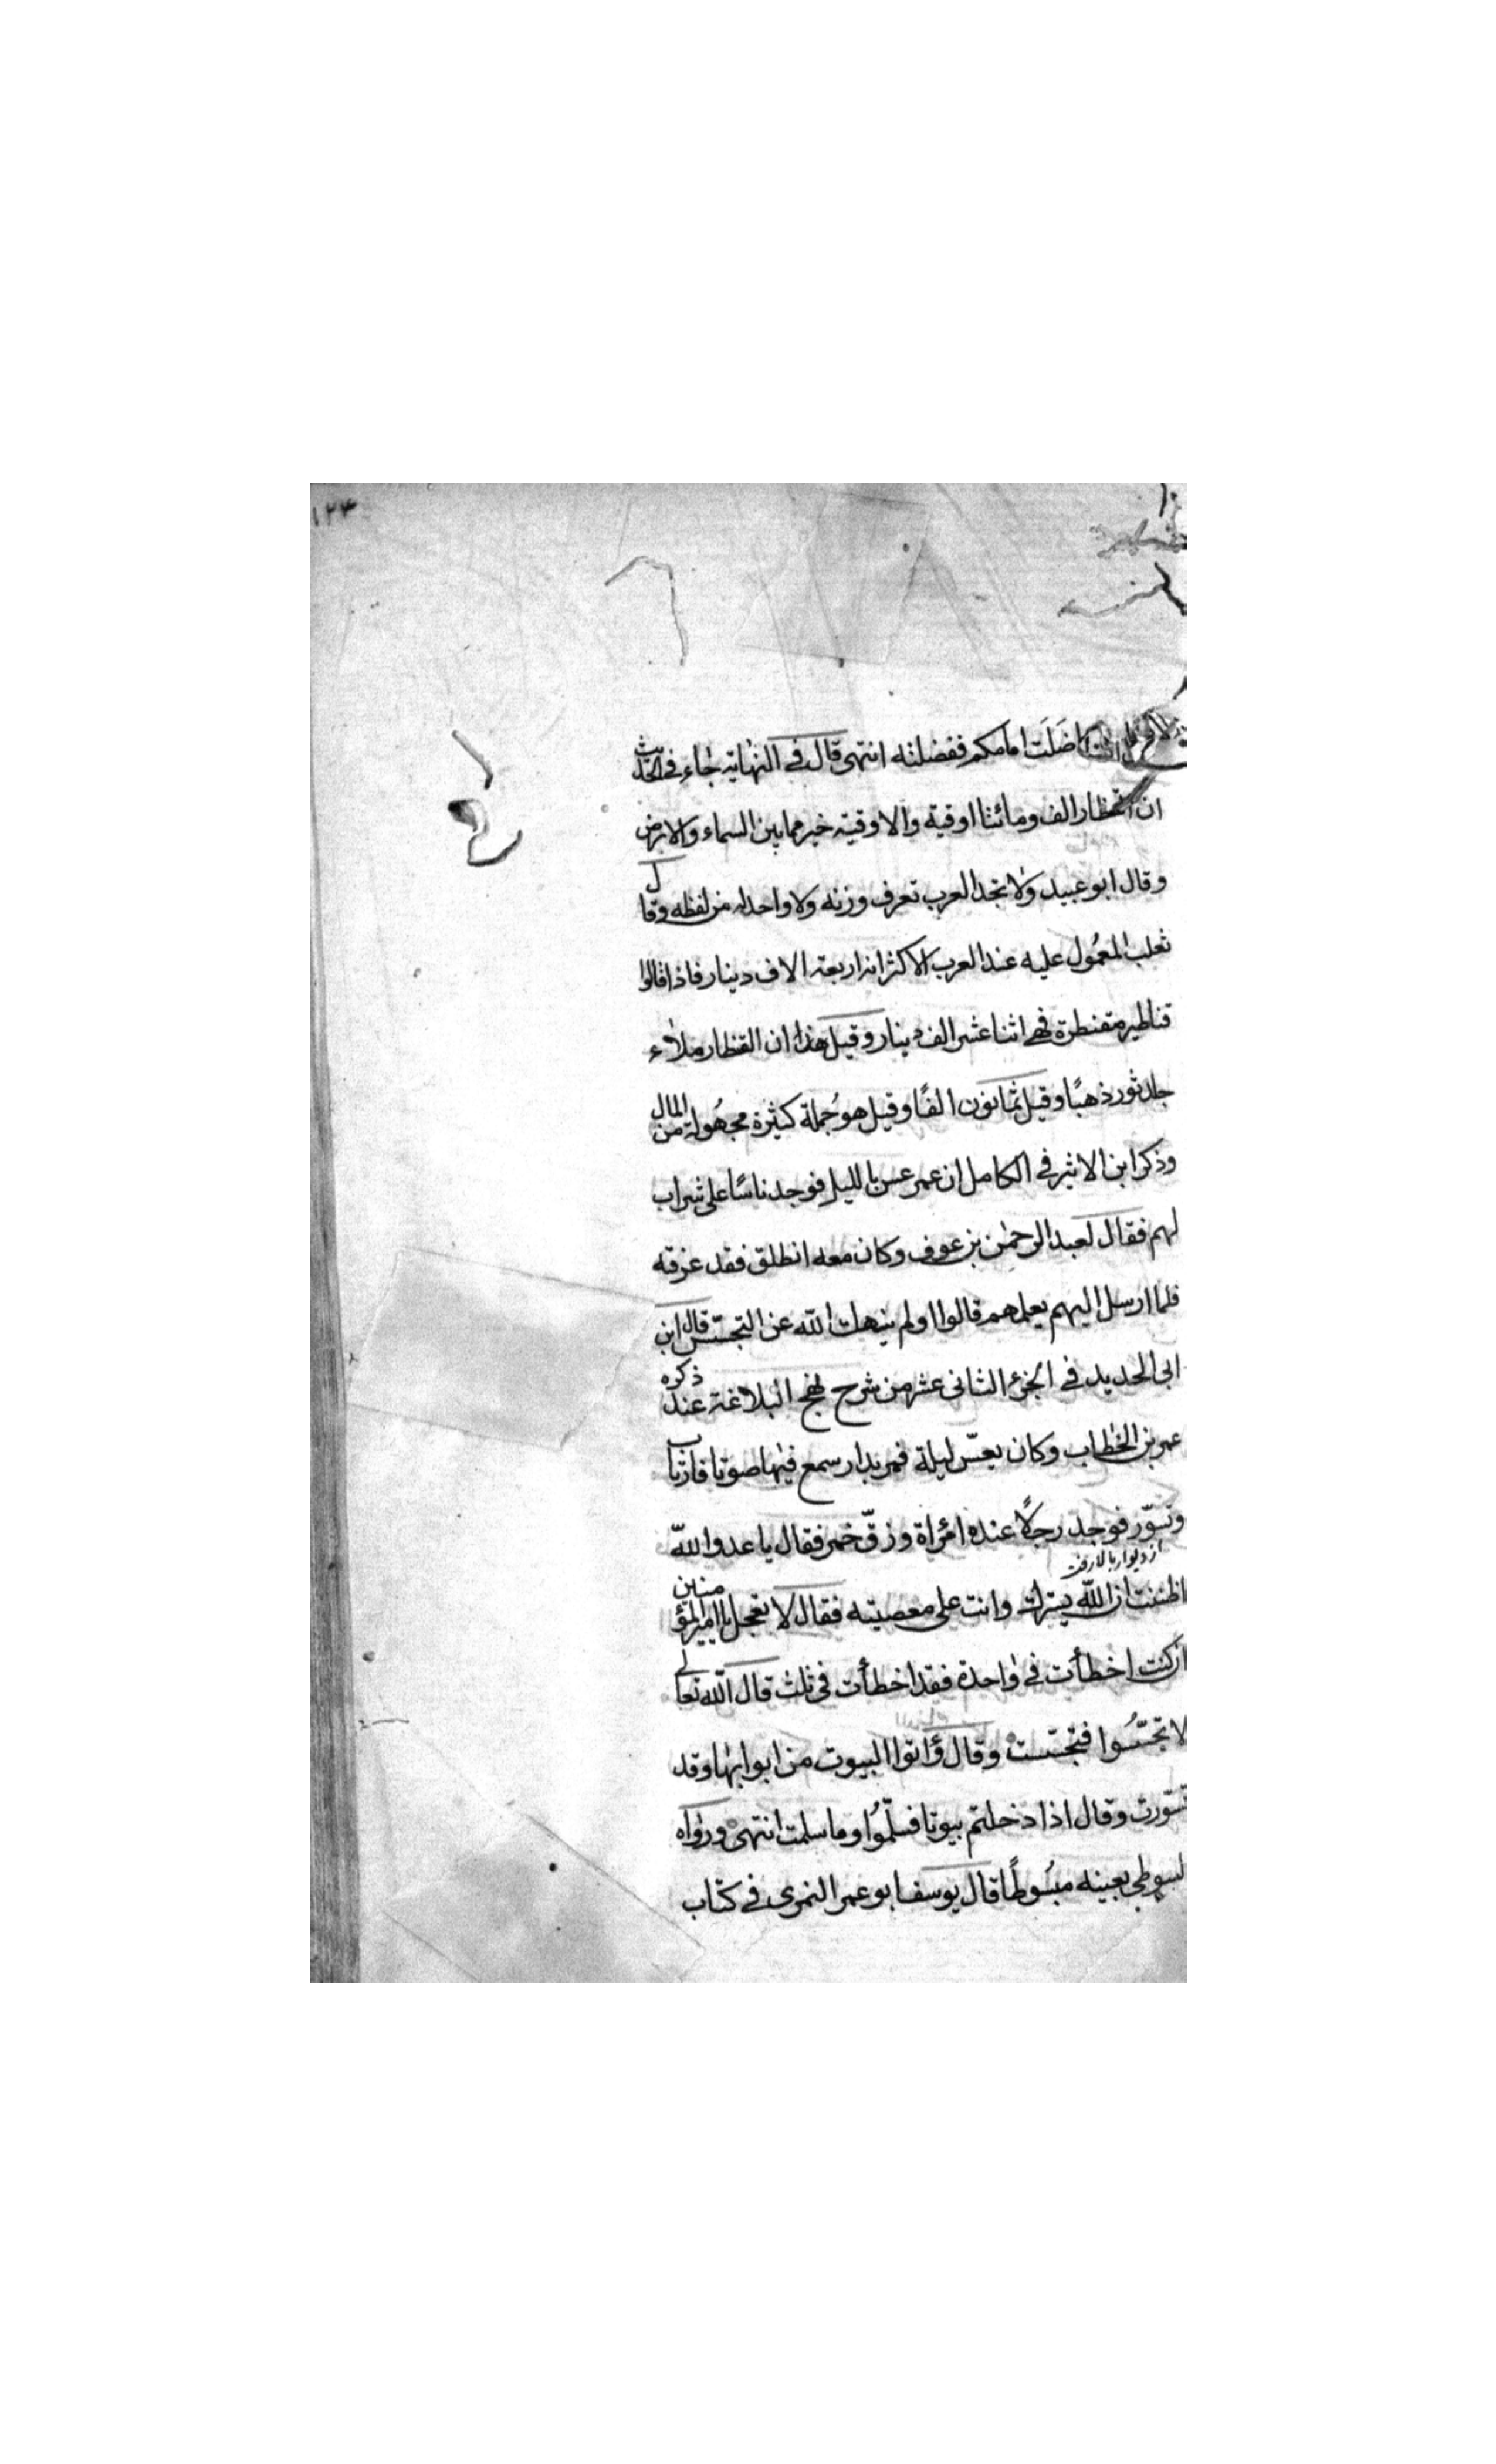 ١٢٣
فاضَلَت امامكم ففضلته انتهى قال في النهاية جاء في الحديث
ان القنطار الف ومائتا اوقية والاوقية خير مما بين السماء والارض
وقال ابو عبيد ولا تجد العرب تعرف وزنه ولا واحد له من لفظه وقال
ثعلب المعمُول عليه عند العرب الاكثر انه اربعة الاف دينار فاذا قالوا
قناطير مقنطرة فهي اثنا عشر الف دينار وقيل هذا ان القنطار ملاء
جلد ثور ذهبًا وقيل ثمانون الفًا وقيل هو جُملة كثيرة مجهُولة من المال
وذكر ابن الاثير في الكامل ان عمر عسّ بالليل فوجد ناسًا على شراب
لهم فقال لعبد الرحمٰن بن عوف وكان معه انطلق فقد عرفته
فلما ارسل اليهم يعلمهم قالوا اولم ينهك الله عن التجسّس قال ابن
ابى الحديد في الجزء الثانى عشر من شرح نهج البلاغة عند ذكره
عمر بن الخطاب وكان يعسّ ليلة فمر بدار سمع فيها صوتا فارتاب
وتسوّر فوجد رجلًا عنده امرأة وزقّ خمر فقال يا عدو الله
از ديوار بالا رفت
اظننت ان الله يسترك وانت على معصيته فقال لا تعجل يا امير المؤمنين
ان كنت اخطأت في واحدة فقد اخطأت في ثلث قال الله تعالى
لا تجسّسُوا فتجسّست وقال وَأتوا البيوت من ابوابها وقد
تسوّرت وقال اذا دخلتم بيوتا فسلّمُوا وما سلمت انتهى ورواه
السيوطي بعينه مبسُوطًا قال يوسف ابو عمر النمرى في كتاب